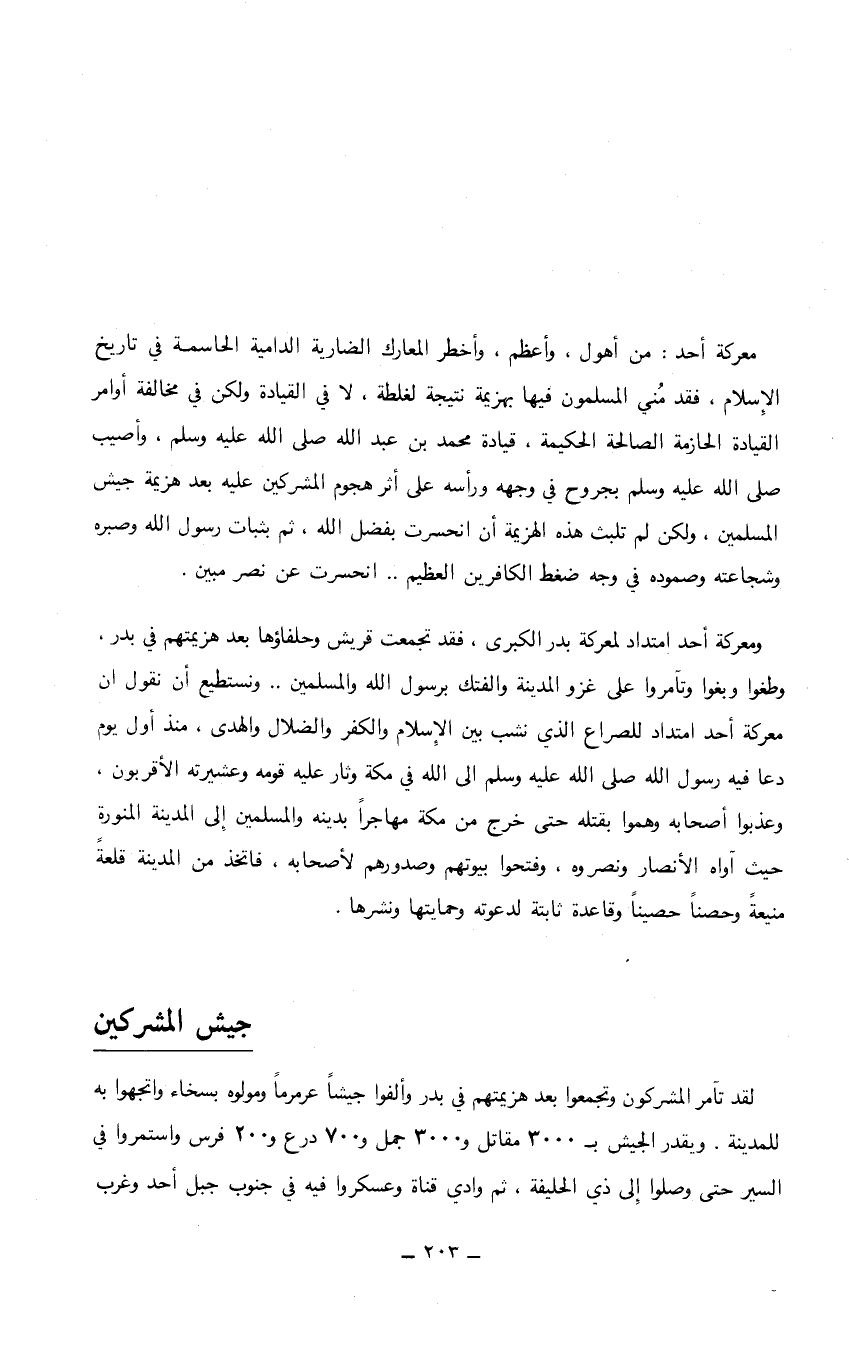 معركة أحد : من أهول ، وأعظم ، وأخطر المعارك الضارية الدامية الحاسمة في تاريخ
الإسلام ، فقد مُني المسلمون فيها بهزيمة نتيجة لغلطة ، لا في القيادة ولكن في مخالفة أوامر
القيادة الحازمة الصالحة الحكيمة ، قيادة محمد بن عبد الله صلى الله عليه وسلم ، وأصيب
صلى الله عليه وسلم بجروح في وجهه ورأسه على أثر هجوم المشركين عليه بعد هزيمة جيش
المسلمين ، ولكن لم تلبث هذه الهزيمة أن انحسرت بفضل الله ، ثم بثبات رسول الله وصبره
وشجاعته وصموده في وجه ضغط الكافرين العظيم .. انحسرت عن نصر مبين .
ومعركة أحد امتداد لمعركة بدر الكبرى ، فقد تجمعت قريش وحلفاؤها بعد هزيمتهم في بدر ،
وطغوا وبغوا وتآمروا على غزو المدينة والفتك برسول الله والمسلمين .. ونستطيع أن نقول ان
معركة أحد امتداد للصراع الذي نشب بين الإسلام والكفر والضلال والهدى ، منذ أول يوم
دعا فيه رسول الله صلى الله عليه وسلم الى الله في مكة وثار عليه قومه وعشيرته الأقربون ،
وعذبوا أصحابه وهموا بقتله حتى خرج من مكة مهاجراً بدينه والمسلمين إلى المدينة المنورة
حيث آواه الأنصار ونصروه ، وفتحوا بيوتهم وصدورهم لأصحابه ، فاتخذ من المدينة قلعةً
منيعةً وحصناً حصيناً وقاعدة ثابتة لدعوته وحمايتها ونشرها .
جيش المشركين
لقد تآمر المشركون وتجمعوا بعد هزيمتهم في بدر وألفوا جيشاً عرمرماً ومولوه بسخاء واتجهوا به
للمدينة . ويقدر الجيش بـ ٣٠٠٠ مقاتل و٣٠٠٠ جمل و٧٠٠ درع و٢٠٠ فرس واستمروا في
السير حتى وصلوا إلى ذي الحليفة ، ثم وادي قناة وعسكروا فيه في جنوب جبل أحد وغرب
– ٢٠٣ –